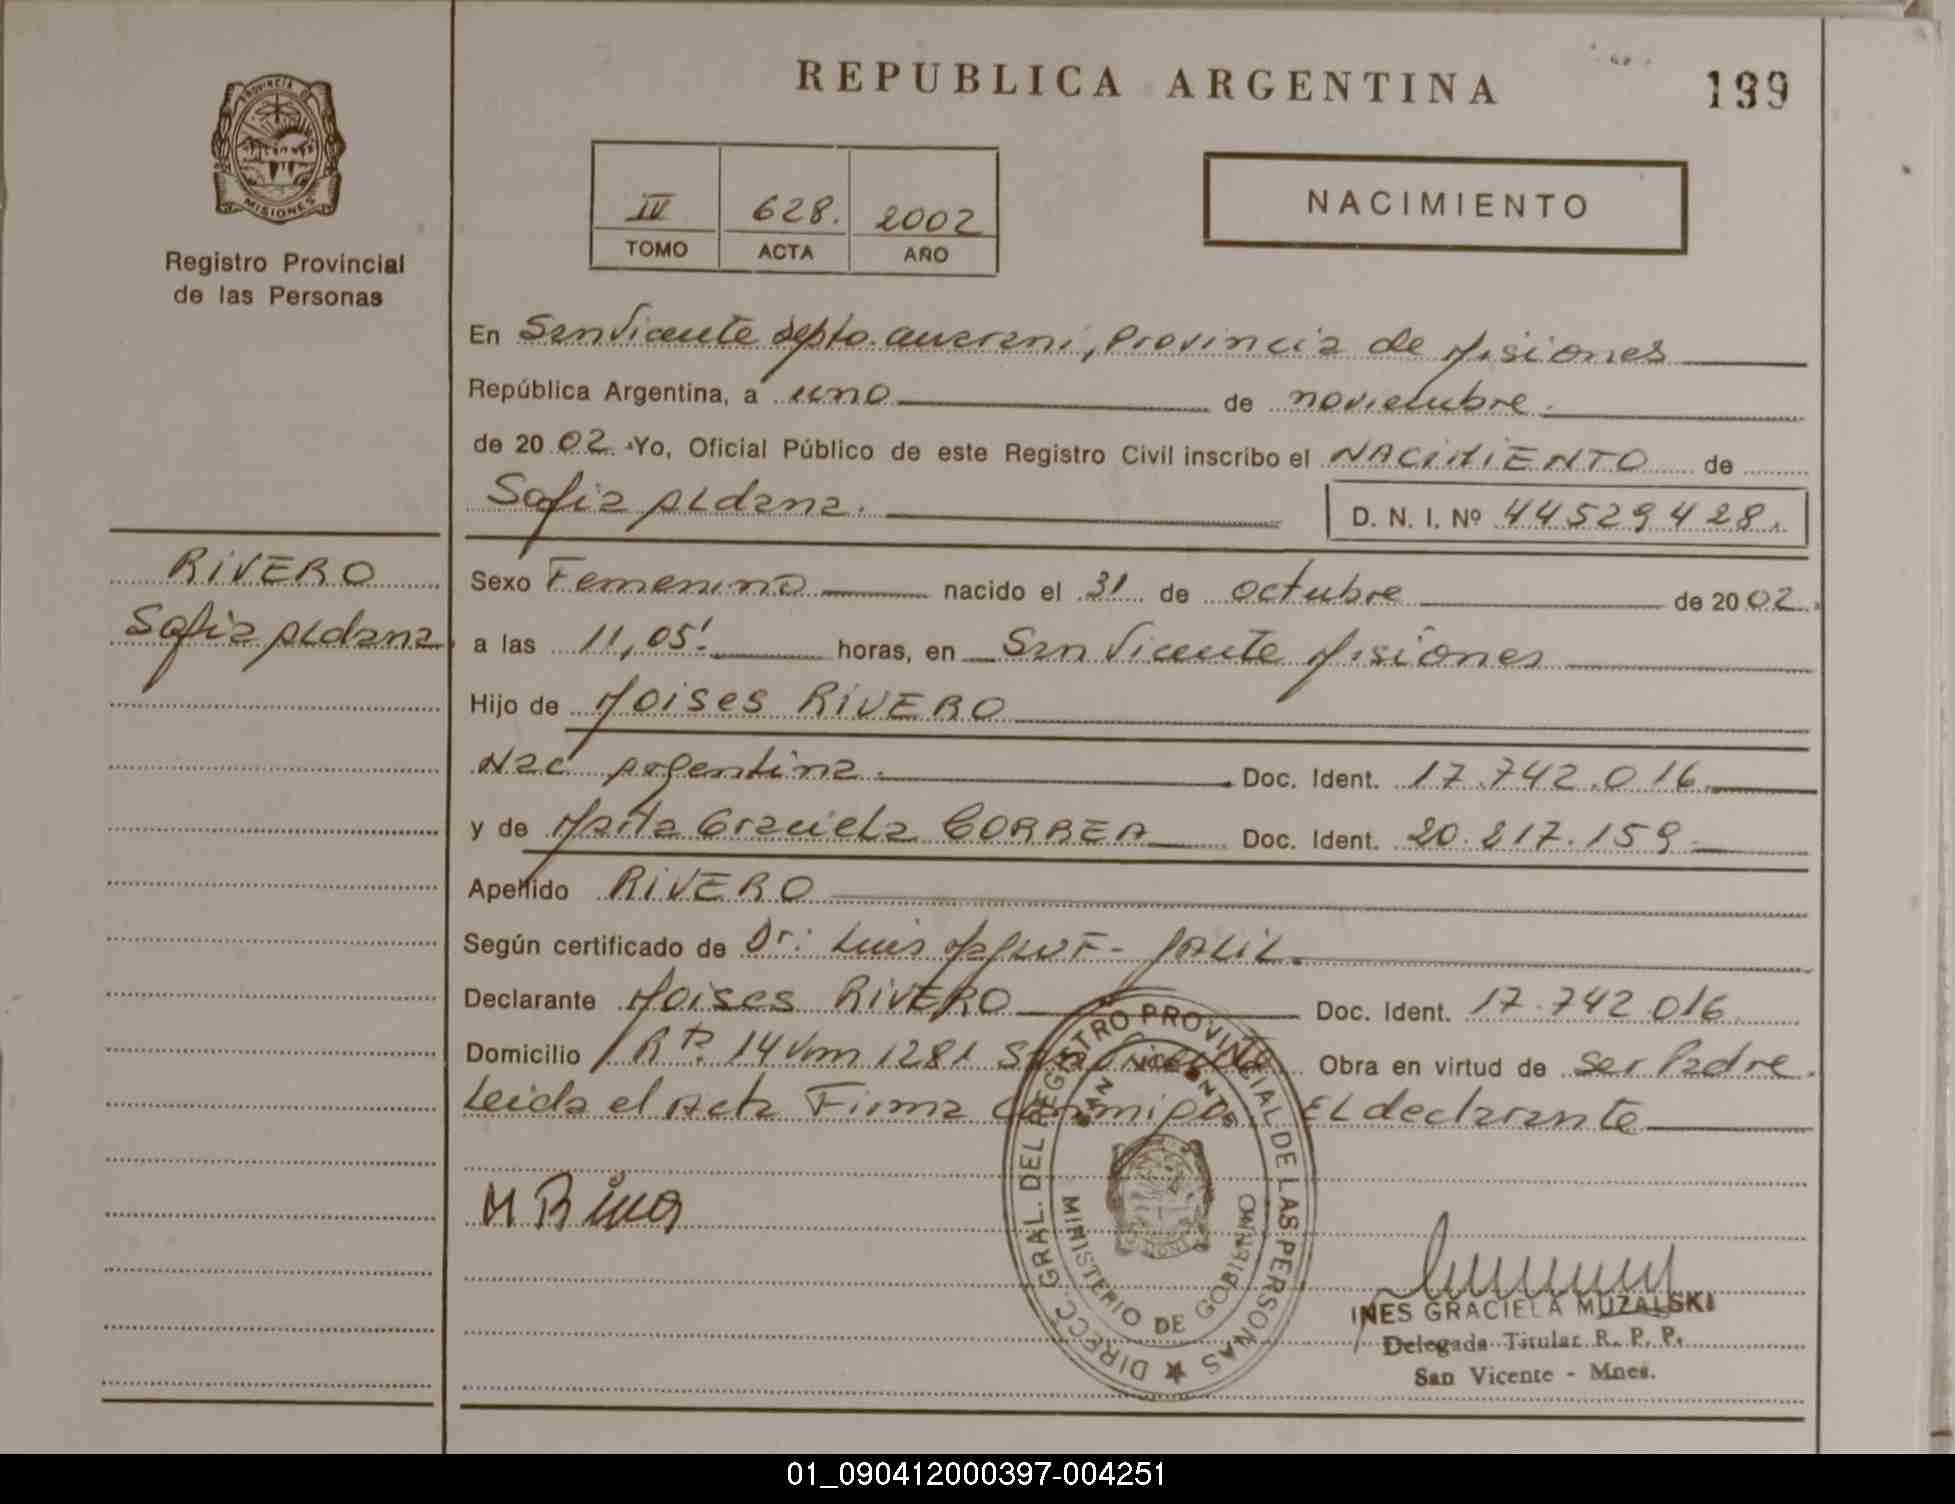 PROVINCIA DE
MISIONES
Registro Provincial
de las Personas
RIVERO
Sofia Aldana
REPUBLICA ARGENTINA
199
IV 628. 2002
TOMO ACTA AÑO
NACIMIENTO
En San Vicente Depto. Guarani, Provincia de Misiones
República Argentina, a uno de noviembre.
de 2002. Yo, Oficial Público de este Registro Civil inscribo el NACIMIENTO de
Sofia Aldana. D. N. I. Nº 44529428.
Sexo Femenino nacido el 31 de octubre de 2002.
a las 11,05' horas, en San Vicente Misiones
Hijo de Moises RIVERO
Nac Argentina. Doc. Ident. 17.742.016
y de Marta Graciela CORREA Doc. Ident. 20.217.159
Apellido RIVERO
Según certificado de Dr: Luis JALIL.
Declarante Moises RIVERO Doc. Ident. 17.742.016
Domicilio Rta. 14 km 1281 San Vicente Obra en virtud de ser Padre.
Leida el Acta Firma conmigo EL declarante
DIRECC. GRAL. DEL REGISTRO PROVINCIAL DE LAS PERSONAS
SAN VICENTE
MINISTERIO DE GOBIERNO
INES GRACIELA MUZALSKI
Delegada Titular R. P. P.
San Vicente - Mnes.
01_090412000397-004251